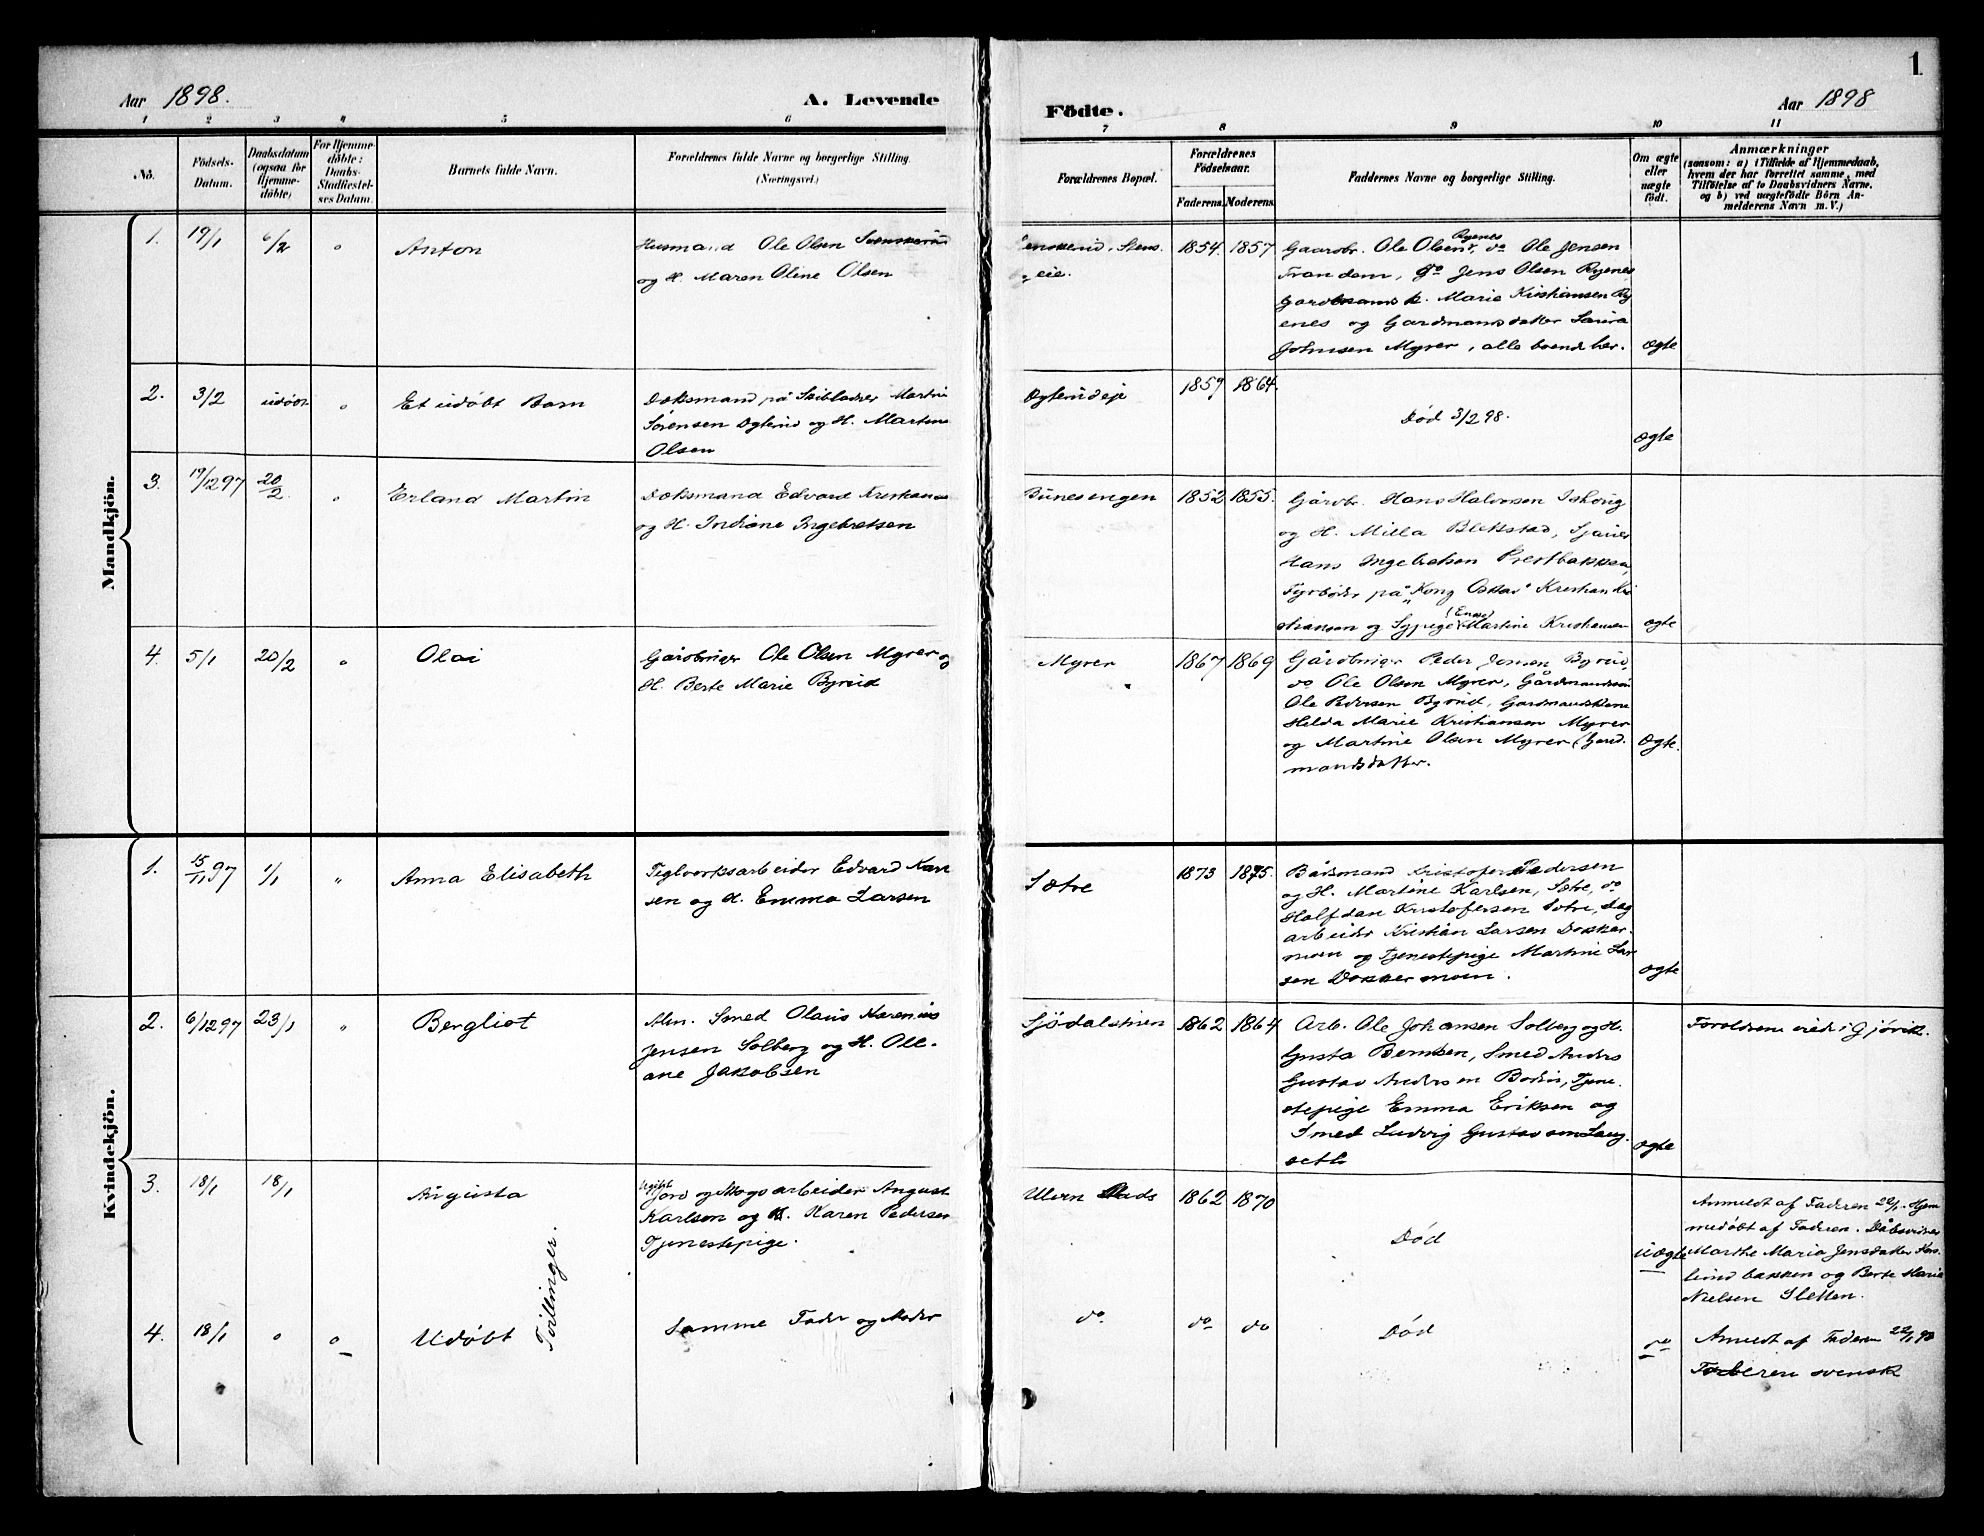 1
Aar 1898.
A. Levende
Födte.
Aar 1898
1 2 3 4 5 6 7 8 9 10 11
No.
Födsels-
Datum.
Daabsdatum
(ogsaa for
Hjemme-
döbte)
For Hjemme-
döbte:
Daabs-
Stadfæstel-
ses Datum.
Barnets fulde Navn.
Forældrenes fulde Navne og borgerlige Stilling.
(Næringsvei.)
Forældrenes Bopæl.
Forældrenes
Födselsaar.
Faderens. Moderens.
Faddernes Navne og borgerlige Stilling.
Om ægte
eller
uægte
födt.
Anmærkninger
(saasom: a) i Tilfælde af Hjemmedaab,
hvem der har forrettet samme, med
Tilföielse af to Daabsvidners Navne,
og b) ved uægtefödte Börn An-
melderens Navn m. V.)
Mandkjön.
1. 19/1 6/2 " Anton
Husmand Ole Olsen
og H. Maren Oline Olsen
eie.
1854. 1857
Gaardbr. Ole Olsen Ryenes, do Ole Jensen
Trandem, do Jens Olsen Ryenes
Marie Kristiansen Ry
enes og Gardmandsdatter Laura
Johnsen Myrer, alle boende her.
ægte
2. 3/2 udøbt " Et udøbt Barn
Dæksmand på Skibladner Martin
Sørensen Øglænd og H. Martine
Olsen
1859 1864.
Død 3/2 98.
ægte
3. 19/12 97 20/2 " Erland Martin
Dæksmand Edvard Kristianse
og H. Indiane Ingebretsen
Bunesengen
1852 1855.
Gårdbr. Hans Halvorsen
og H. Milla Blekstad,
Hans Ingebretsen Prestbakken,
Fyrbøder på "Kong Oskar" Kristian Kri
stiansen og Sypige (Enge) Martine Kristiansen
ægte
4. 5/1 20/2 " Olai
Gårdbruger Ole Olsen Myrer og
H. Berte Marie Byrud
Myrer
1867 1869
Gårdbruger Peder Jensen Byrud,
do Ole Olsen Myrer, Gårdmandssøn
Ole Pedersen Byrud, Gardmandskone
Helda Marie Kristiansen Myrer
og Martine Olsen Myrer (Gard-
mandsdatter.
ægte.
Kvindekjön.
1. 15/11 97 1/1 " Anna Elisabeth
Teglverksarbeider Edvard Kar
sen og H. Emma Larsen
Sætre
1873 1875.
Bådsmand Kristofer Pedersen
og H. Martine Karlsen, Sætre, do
Halfdan Kristofersen Sætre, Dag
arbeider Kristian Larsen Dokker-
moen og Tjenestepige Martine Lar
sen Dokkermoen.
ægte
2. 6/12 97 23/1 " Bergliot
Alm. Smed Olaus Karenius
Jensen Solberg og H. Oll-
ane Jakobsen
Sjødalstuen
1862 1864
Arb. Ole Johansen Solberg og H.
Gusta Berntsen, Smed Anders
Gustav Andersen Bodin, Tjene-
stepige Emma Eriksen og
Smed Ludvig Gustavson Laug-
seth
ægte
Forældrene viede i Gjøvik.
3. 18/1 18/1 Augusta
Ugift
Jord og Skogsarbeider August
Karlson og Karen Pedersen
Tjenestepige.
1862 1870
Død
uægte
Anmeldt af Faderen 22/1. Hjem
medøbt af Faderen. Dåbsvidner
Marthe Maria Jensdatter
bakken og Berte Maria
Nielsen Sletten.
Tvillinger.
4. 18/1 " " Udøbt
Samme Fader og Moder
do do do
Død
do
Anmeldt af Faderen 22/1 98
Faderen svensk